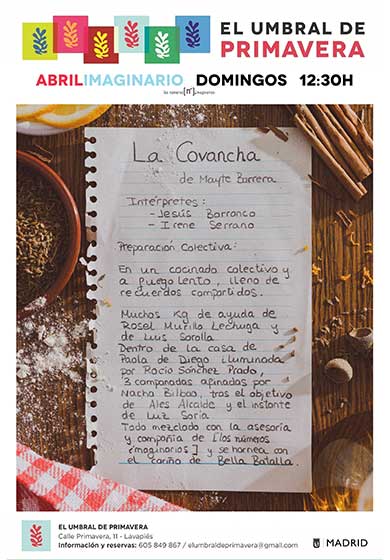 EL UMBRAL DE
PRIMAVERA
ABRILIMAGINARIO DOMINGOS 12:30H
los números [nº] imaginarios
La Covancha
de Mayte Barrera
Intérpretes:
- Jesús Barranco
- Irene Serrano
Preparación Colectiva:
En un cocinado colectivo y
a fuego lento, lleno de
recuerdos compartidos.
Muchos Kg de ayuda de
Rosel Murillo Lechuga y
de Luis Sorolla
Dentro de la casa de
Paola de Diego iluminada
por Rocío Sánchez Prado,
3 compandas afinadas por
Nacho Bilbao, tras el objetivo
de Ales Alcalde y el instante
de Luz Soria
Todo mezclado con la asesoría
y compañía de [los números
imaginarios] y se hornea con
el cariño de Bella Batalla.
EL UMBRAL DE PRIMAVERA
Calle Primavera, 11 - Lavapiés
Información y reservas: 605 849 867 / elumbraldeprimavera@gmail.com
MADRID